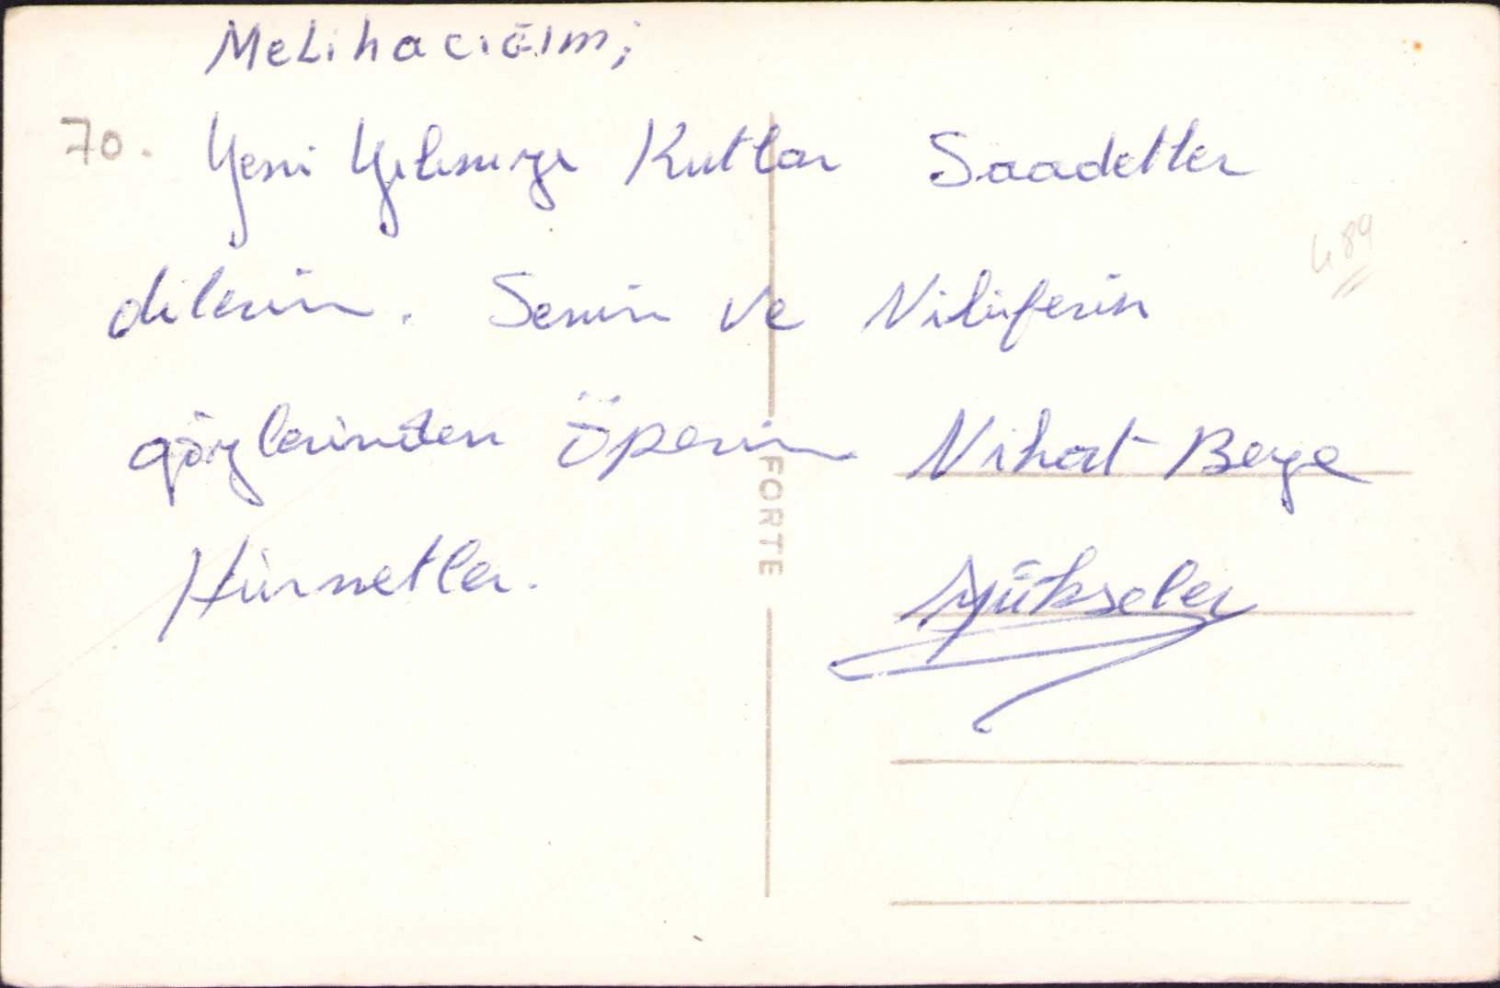 Melihacığım;
70. Yeni Yılınızı Kutlar Saadetler
489
dilerim. Senin ve Nilüferin
gözlerinden öperim Nihat Beye
FORTE
Hürmetler.